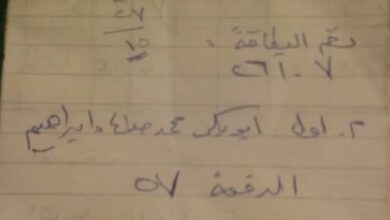 ٢٧
١٥
رقم البطاقة :
٢٦١٠٧
م. اول ابوبكر محمد صلاح ابراهيم
الدفعة ٥٧